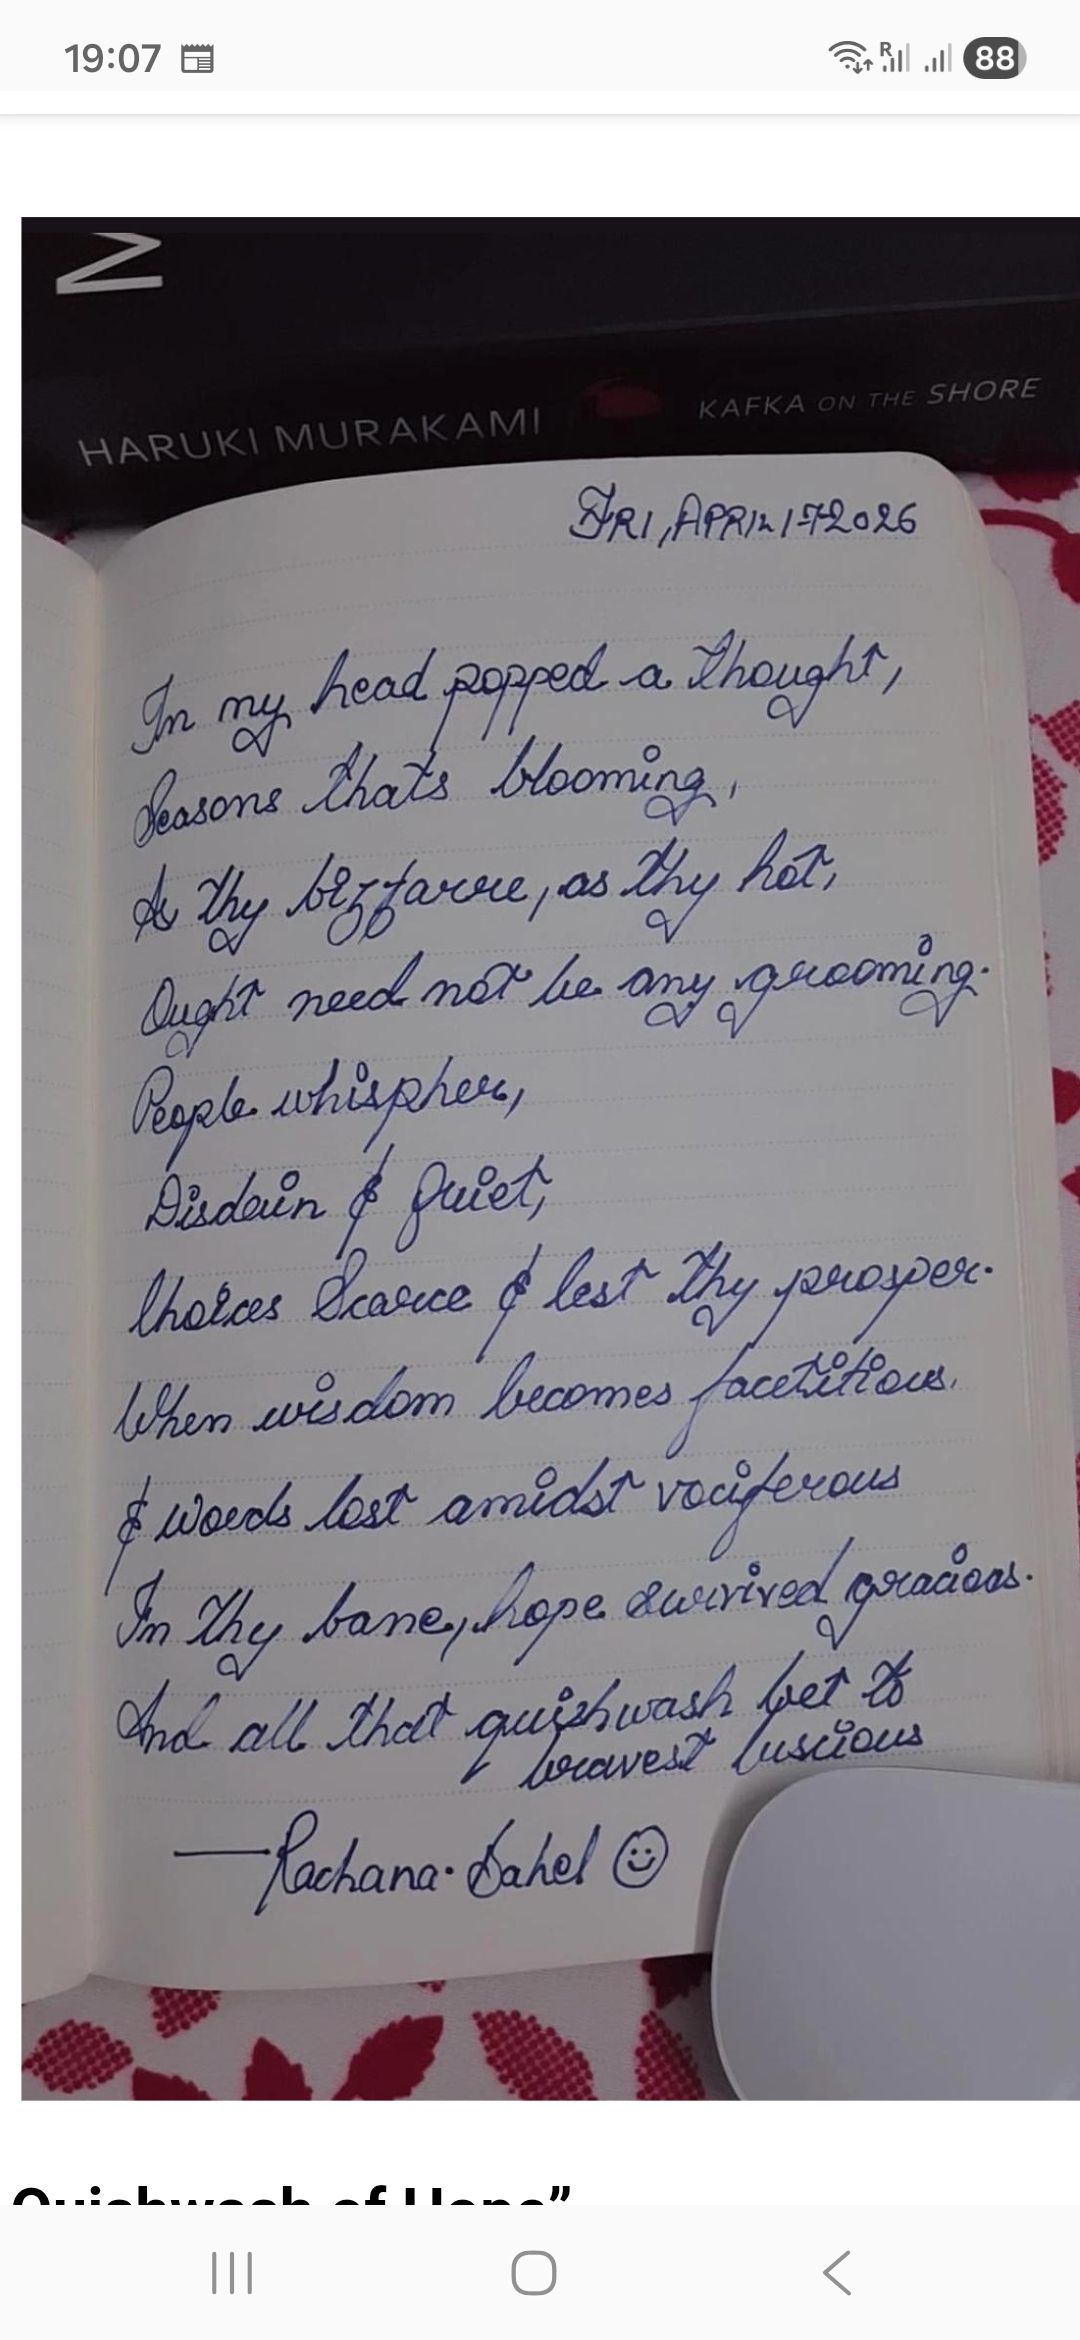 19:07
R
88
M
HARUKI MURAKAMI KAFKA ON THE SHORE
FRI, APRIL 17 2026
In my head popped a thought,
Seasons thats blooming,
As thy bizzarre, as thy hot,
Ought need not be any grooming.
People whispher,
Disdain & Quiet,
Choices Scarce & lest thy prosper.
When wisdom becomes facetitious,
& words lost amidst vociferous
In thy bane, hope survived gracioas.
And all that quishwash bet to
bravest luscious
—Rachana Dahel
Quishwash of Hope”